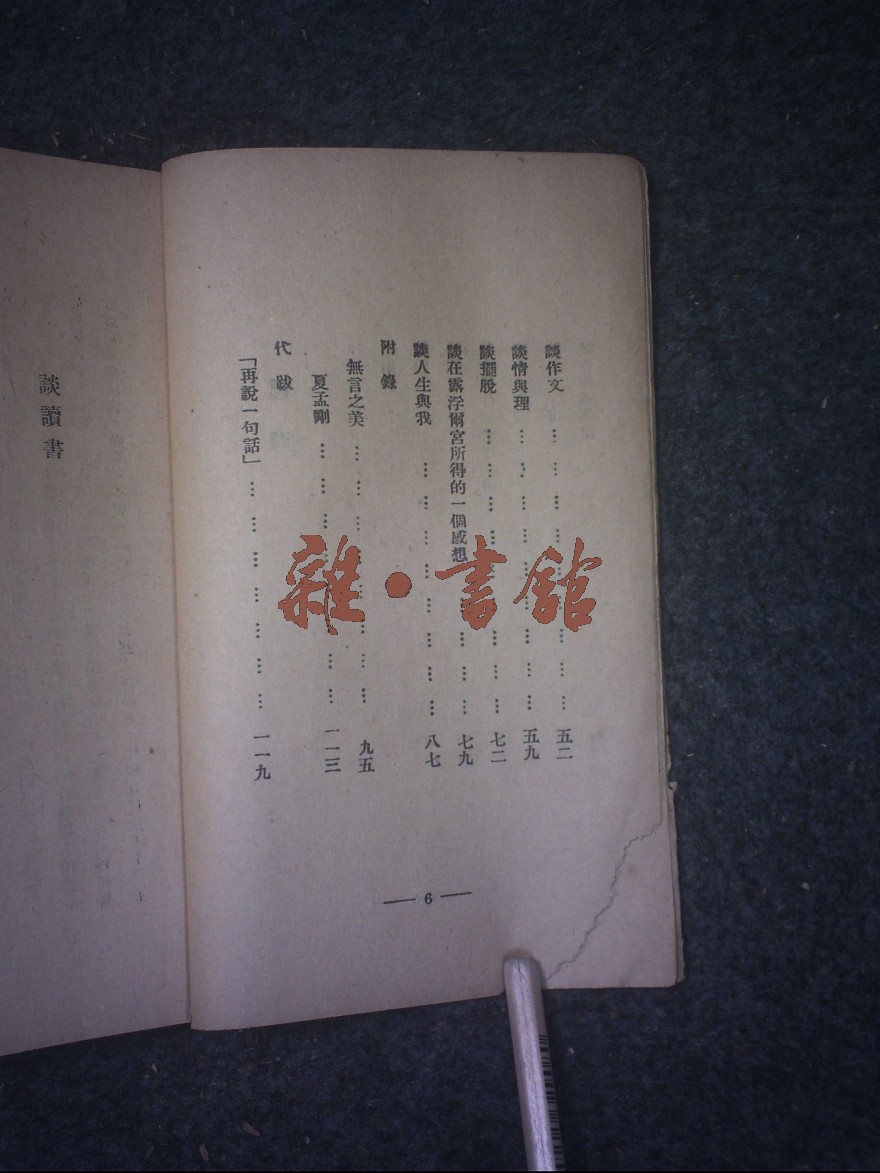 談作文 … … … … … … … … … 五二
談情與理 … … … … … … … … … 五九
談擺脫 … … … … … … … … … 七二
談在露浮爾宮所得的一個感想 … … … … 七九
談人生與我 … … … … … … … … … 八七
附錄
無言之美 … … … … … … … … … 九五
夏孟剛 … … … … … … … … … 一一三
代跋
「再說一句話」 … … … … … … … … 一一九
— 6 —
談讀書
雜·書館